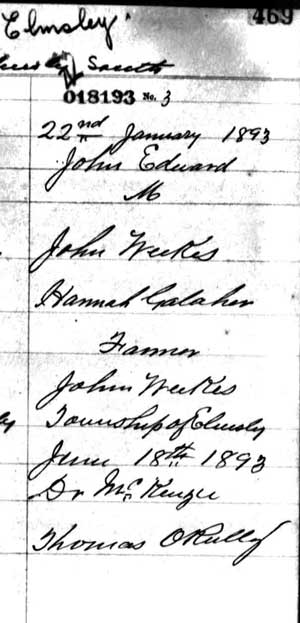 Elmsley
469
South
018193 No. 3
22nd January 1893
John Edward
M
John Weekes
Hannah Galaher
Farmer
John Weekes
Township of Elmsley
June 18th 1893
Dr McKenzie
Thomas OReilly